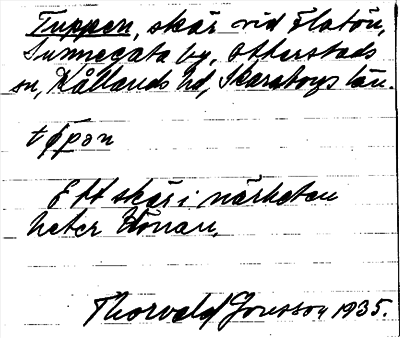 Tuppen, skär vid Flatön,
Sunnegata by, Otterstads
sn, Kållands hd, Skaraborgs län.
Ett skär i närheten
heter Hönan.
Thorvald Jonsson 1935.